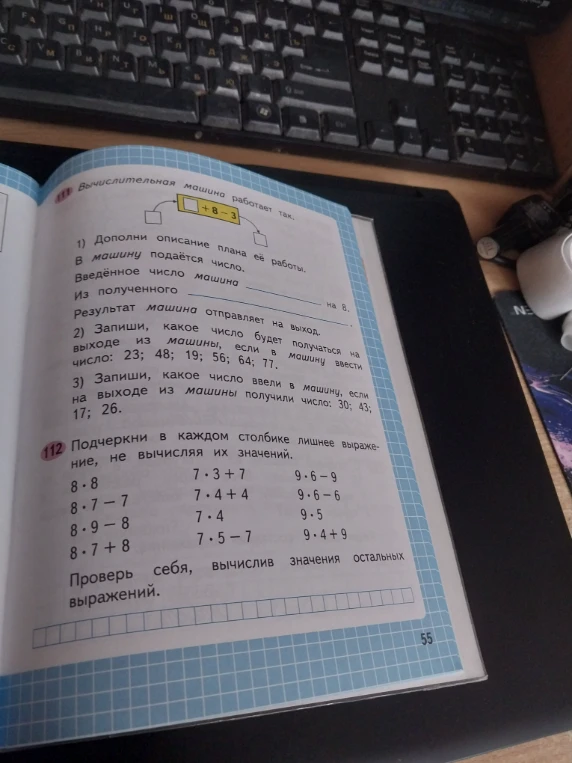 111 Вычислительная машина работает так.
+ 8 − 3
1) Дополни описание плана её работы.
В машину подаётся число.
Введённое число машина ____________ на 8.
Из полученного ____________.
Результат машина отправляет на выход.
2) Запиши, какое число будет получаться на
выходе из машины, если в машину ввести
число: 23; 48; 19; 56; 64; 77.
3) Запиши, какое число ввели в машину, если
на выходе из машины получили число: 30; 43;
17; 26.
112 Подчеркни в каждом столбике лишнее выраже-
ние, не вычисляя их значений.
8 · 8 7 · 3 + 7 9 · 6 − 9
8 · 7 − 7 7 · 4 + 4 9 · 6 − 6
8 · 9 − 8 7 · 4 9 · 5
8 · 7 + 8 7 · 5 − 7 9 · 4 + 9
Проверь себя, вычислив значения остальных
выражений.
55